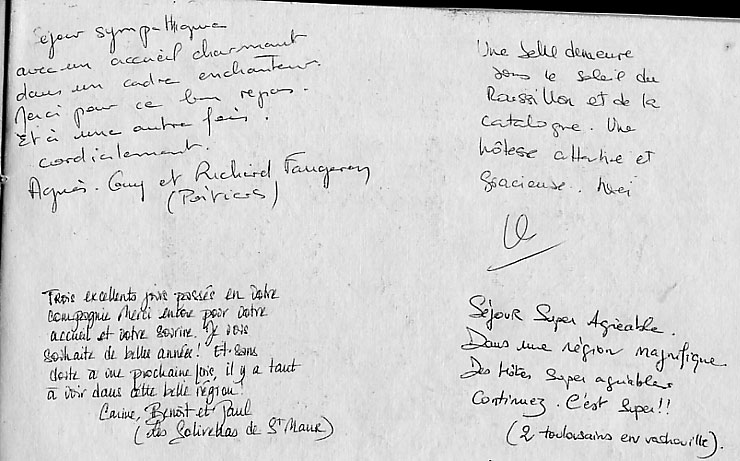 éjour sympathique
avec un accueil charmant
dans un cadre enchanteur.
Merci pour ce bon repas.
Et à une autre fois.
cordialement.
Agnès. Guy et Richard Faugeron
(Poitiers)
Trois excellents jours passés en votre
compagnie Merci encore pour votre
accueil et votre sourire. Je vous
souhaite de belle année! Et sans
doute à une prochaine fois, il y a tant
à voir dans cette belle région!
Carine, Benoît et Paul
(les de St Maur)
Une belle demeure
sous le soleil du
Roussillon et de la
catalogne. Une
hôtesse attentive et
gracieuse. Merci
Séjour Super Agréable.
Dans une région magnifique.
Des hôtes super agréables
Continuez. C'est Super!!
(2 toulousains en vashouille).